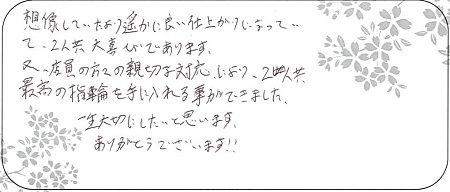 想像していたより遥かに良い仕上がりになってい
て、2人共大喜びであります。
又、店員の方々の親切な対応により、2人共、
最高の指輪を手に入れる事ができました。
一生大切にしたいと思います。
ありがとうございます!!